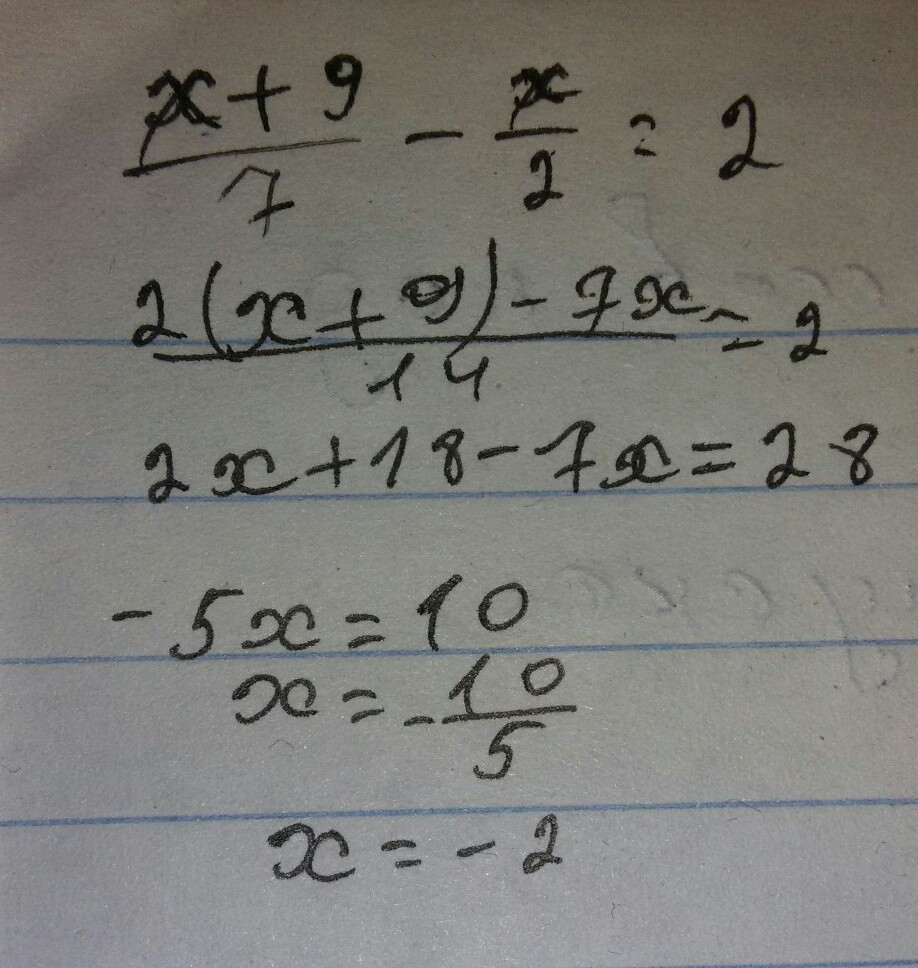 (x + 9)/7 - x/2 = 2
(2(x + 9) - 7x)/14 = 2
2x + 18 - 7x = 28
-5x = 10
x = -10/5
x = -2